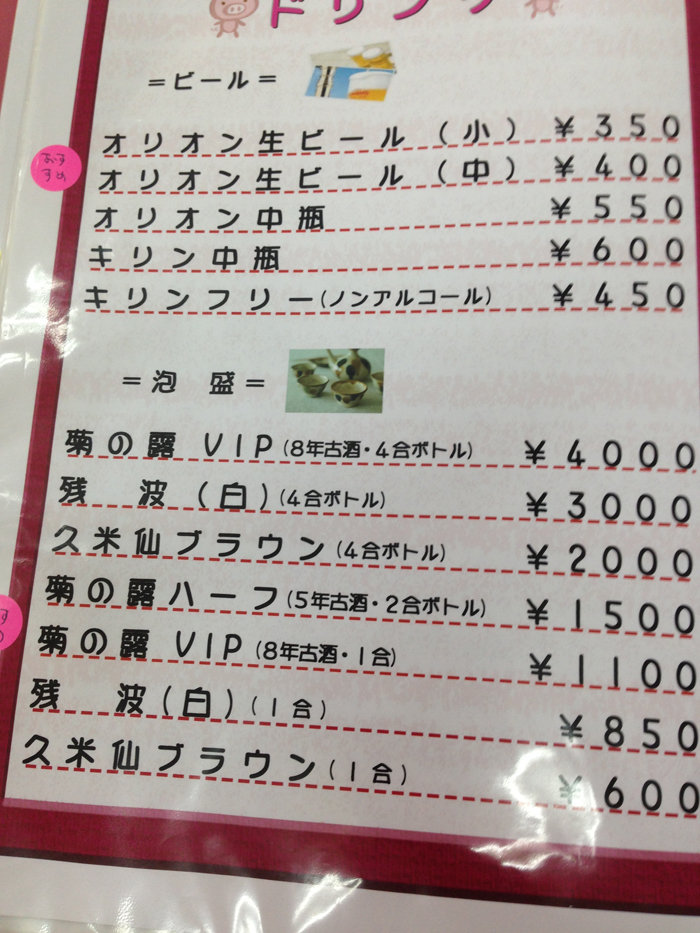 ドリンク
＝ビール＝
オリオン生ビール（小） ￥350
おす
すめ
オリオン生ビール（中） ￥400
オリオン中瓶 ￥550
キリン中瓶 ￥600
キリンフリー（ノンアルコール） ￥450
＝泡 盛＝
菊の露 VIP（8年古酒・4合ボトル） ￥4000
残 波（白）（4合ボトル） ￥3000
久米仙ブラウン（4合ボトル） ￥2000
菊の露ハーフ（5年古酒・2合ボトル） ￥1500
菊の露 VIP（8年古酒・1合） ￥1100
残 波（白）（1合） ￥850
久米仙ブラウン（1合） ￥600